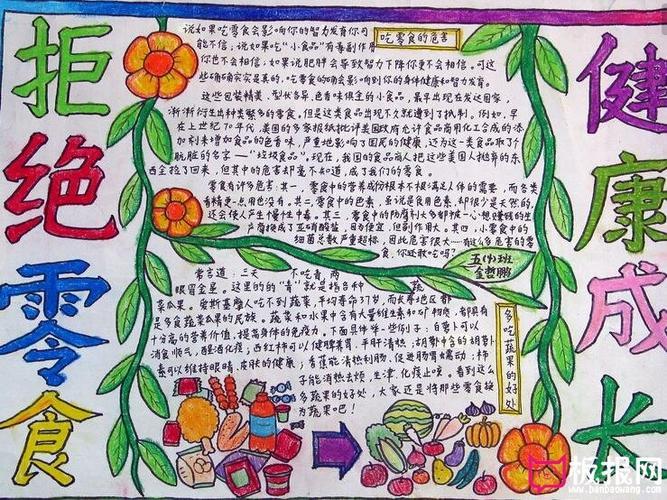 拒绝零食
健康成长
吃零食的危害
说如果吃零食会影响你的智力发育你可
能不信；说如果吃"小食品"有毒副作用
你也不会相信；如果说肥胖会导致智力下降你更不会相信。可这
些的确确实实是真的，吃零食的确会影响到你的身体健康和智力发育。
这些包装精美、型状各异、色香味俱全的小食品，最早出现在发达国家，
渐渐衍生出种类繁多的零食。但是这类食品出现不久就遭到了抗制。例如，早
在上世纪70年代，美国的多家报纸批评美国政府允许食品商用化工合成的添
加剂来增加食品的色香味，严重地影响了国民的健康，还为这一类食品取了个
肮脏的名字——"垃圾食品"。现在，我国的食品商人把这些美国人抛弃的东
西全捡了回来，但其中的危害却毫不知道，成了我们的零食。
零食有许多危害。其一，零食中的营养成份根本不能满足人体的需要，而各类
香精更一点用也没有。其二，零食中的色素，虽说是食用色素，却很少是天然的，
还会使人产生慢性中毒。其三，零食中的防腐剂大多都被一心想赚钱的生
产商换成了亚硝酸盐，虽方便宜，但副作用大。其四，小零食中的
细菌总数严重超标，因此危害很大——有这么多危害的零
食，你还敢吃吗？
五(1)班
多吃蔬果的好处
常言道：三天不吃青，两
眼冒金星。这里的的"青"就是指各种蔬
菜水果。爱斯基摩人吃不到蔬菜，平均寿命37岁，而长寿地区都
是多食蔬菜水果的民族。蔬菜和水果中含有大量维生素和矿物质，都具有
十分高的营养价值，提高身体的免疫力。下面具体举一些例子：白萝卜可以
消食顺气，醒酒化痰；西红柿可以健胃消食，平肝清热；胡萝卜中含的胡萝卜
素可以维持眼睛、皮肤的健康；香蕉能清热利肠，促进肠胃蠕动；柿
子能消热去烦，生津，化痰止咳。看到这么
多蔬果的好处，大家还是将那些零食换
为蔬果吧！
板报网
www.banbaowang.com